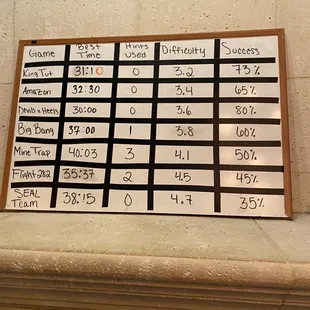 Game Best Time Hints Used Difficulty Success
King Tut 31:10 0 3.2 73%
Amazon 32:30 0 3.4 65%
Devils n Heels 30:00 0 3.6 80%
Big Bang 37:00 1 3.8 60%
Mine Trap 40:03 3 4.1 50%
Flight 282 35:37 2 4.5 45%
SEAL Team 38:15 0 4.7 35%